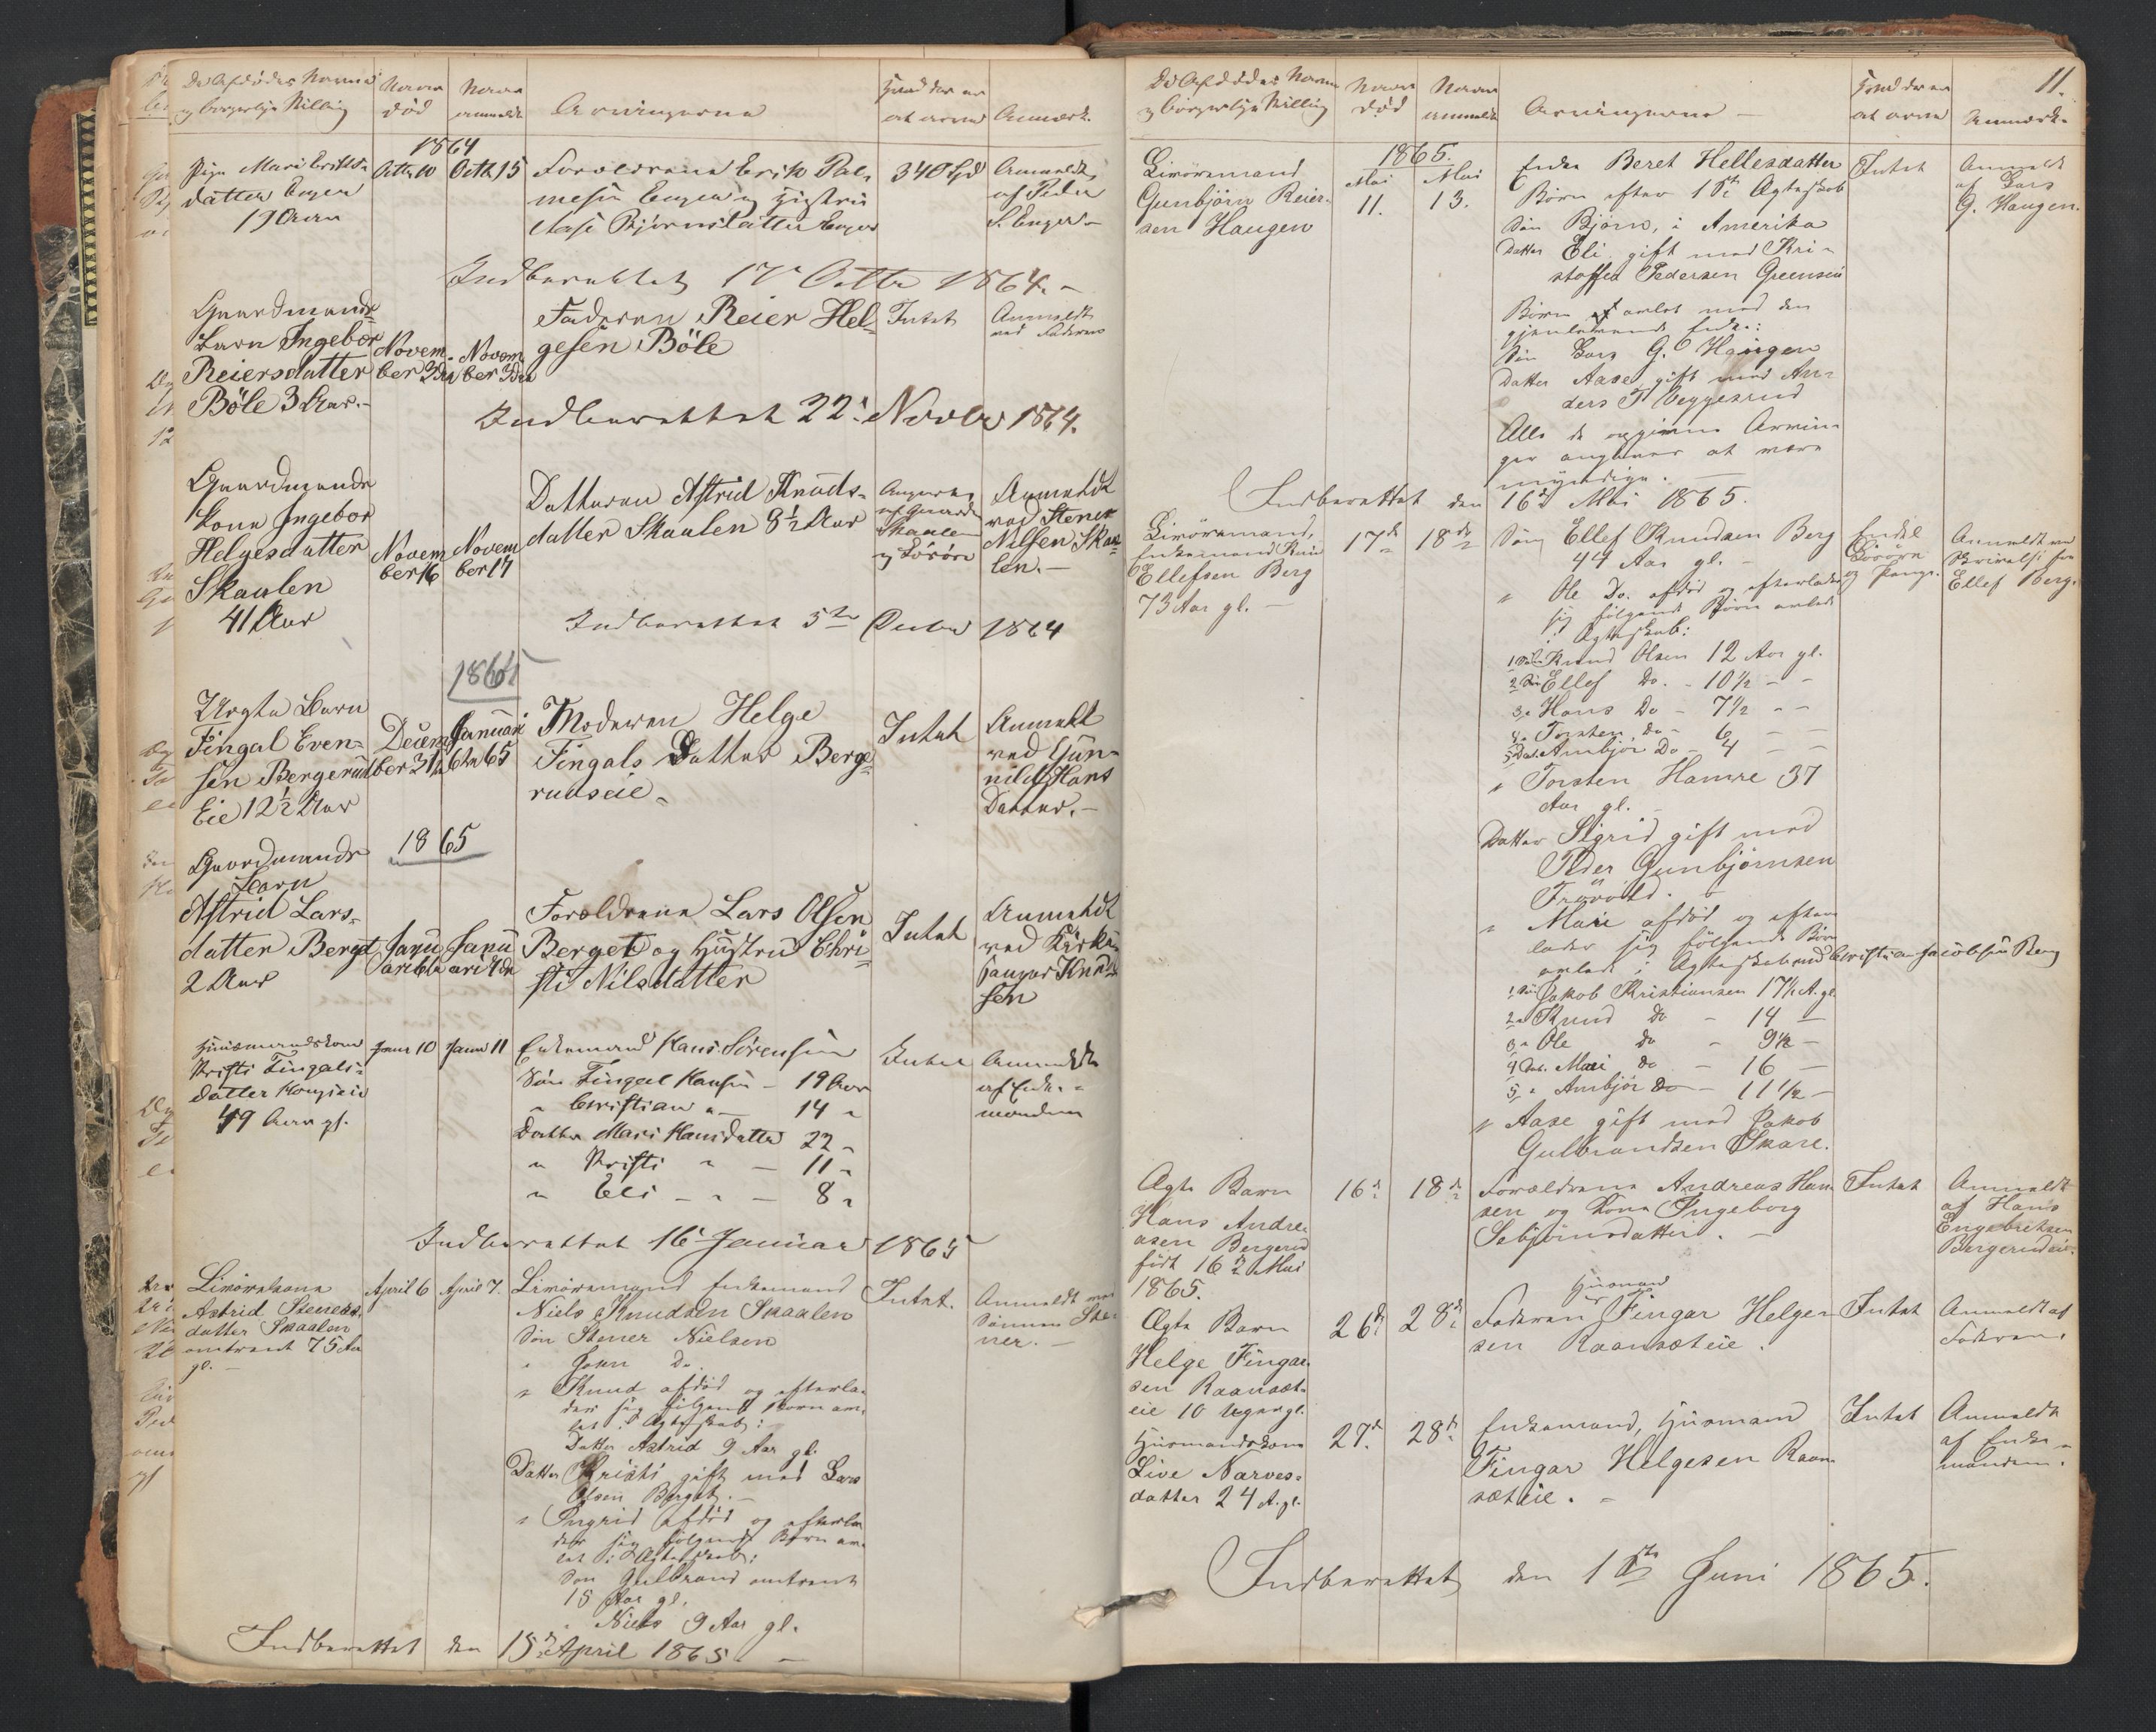 De Afdødes Navne
og borgerlige Stilling
Naar
død
Naar
anmeldt
Arvingerne
Hvad der er
at arve
Anmærk.
1864
Pige Mari Eriks-
datter Enger
19 Aar
Octb 10
Octb 15
Forældrene Erik Pal-
mesen Enger og Hustru
Aase Bjørnsdatter Enger
340 Spd
Anmeldt
af Peder
S. Enger
Indberettet 17 Octbr 1864.
Gaardmands
Barn Ingebor
Reiersdatter
Böle 3 Aar.
Novem-
ber 2den
Novem
ber 3die
Faderen Reier Hel-
gesen Böle
Intet
Anmeldt
ved Faderen
Indberettet 22 Novbr 1864.
Gaardmands
Kone Ingebor
Helgesdatter
Skaalen
41 Aar
Novem
ber 16
Novem
ber 17
Datteren Astrid Knuds-
datter Skaalen 8½ Aar
Skaalen
og Lösöre
Anmeldt
ved Stener
Nilsen Skaa-
len.
Indberettet 5te Decbr 1864
1865
Uegte Barn
Fingal Even-
sen Bergerud
Eie 12½ Aar
Decem
ber 31
Januari
6te 65
Moderen Helge
Fingals Datter Berge
rudseie
Intet
Anmeldt
ved Gun-
nild Hans
Datter.
1865
Gaardmands
Barn
Astrid Lars-
datter Berget
2 Aar
Janu
ari
Janu
ari
Forældrene Lars Olsen
Berget og Hustru Chri-
sti Nilsdatter
Intet
Anmeldt
ved Kirke
sanger Knud-
sen
Huusmandskone
Kristi Fingals-
datter
49 Aar gl.
Janr 10
Janr 11
Enkemand Hans Sörensen
Sön Fingal Hansen - 19 Aar
" Christian " - 14 "
Datter Mari Hansdatter 22 "
" Kristi " - 11 "
" Eli - " - 8 "
Intet
Anmeldt
af Enke-
manden
Indberettet 16 Januar 1865
Livörekone
Astrid Steners-
datter Skaalen
omtrent 75 Aar
gl.
April 6
April 7.
Livöremand Enkemand
Niels Knudsen Skaalen
Sön Stener Nielsen
" John Do.
" Knud afdød og efterla-
der sig følgende Børn av-
let i Ægteskab:
Datter Astrid 9 Aar gl.
Datter Kristi gift med Lars
Olsen Berget.
" Ingrid afdød og efterla
der sig følgende Børn av-
let i Ægteskab:
Søn Gulbrand omtrent
15 Aar gl.
" Niels 9 Aar gl.
Intet.
Anmeldt ved
Sønnen Ste-
ner.
Indberettet den 15de April 1865.
11.
De Afdødes Navne
og borgerlige Stilling
Naar
død
Naar
anmeldt
Arvingerne
Hvad der er
at arve
Anmærk.
1865.
Livöremand
Gunbjörn Reier-
sen Haugen
Mai
11.
Mai
13.
Enken Beret Hellesdatter
Børn efter 1ste Ægteskab
Søn Bjørn, i Amerika
Datter Eli gift med Kri-
stoffer Pedersen Greensen
Børn avlet med den
gjenlevende Enke:
Søn Lars G. Haugen
Datter Aase gift med An-
ders T. Veggesrud
Alle de opgivne Arvin-
ger angives at være
myndige.
Intet
Anmeldt
af Lars
G. Haugen.
Indberettet den 16de Mai 1865.
Livöremand,
Enkemand Knud
Ellefsen Berg
73 Aar gl.
17de
18de
Søn Ellef Knudsen Berg
44 Aar gl.
" Ole Do. afdød og efterlader
sig følgende Børn avlede
i Ægteskab:
1 Søn Knud Olsen 12 Aar gl.
2 Søn Ellef Do. - 10½ - -
3 " Hans Do - 7½ - -
4 " Torsten Do - 6 - -
5 Dat. Ambjör Do - 4 - -
" Torsten Hamre 37
Aar gl.
Datter Sigrid gift med
Peder Gunbjörnsen
Trövold.
" Mari afdød og efter-
lader sig følgende Børn
avlede i Ægteskab med Christian Jacobsen Berg
1 Søn Jakob Kristiansen 17½ A. gl.
2 " Knud Do - 14 -
3 " Ole Do - 9½ -
4 Dat. Mari Do - 16 -
5 " Ambjör Do - 11½ -
" Aase gift med Jakob
Gulbrandsen Skare.
Endel
Lösöre
og Penge.
Anmeldt ved
Skrivelse fra
Ellef Berg.
Ægte Barn
Hans Andre-
asen Bergerud
født 16de Mai
1865.
16de
18de
Forældrene Andreas Han-
sen og Kone Ingeborg
Sebjörnsdatter.
Intet
Anmeldt
af Hans
Engebretsen
Bergerudeie.
Ægte Barn
Helge Fingar-
sen Raanset-
eie 10 Uger gl.
26de
28de
Husmand
Faderen Fingar Helge-
sen Raanseteie.
Intet
Anmeldt af
Faderen.
Husmandskone
Live Narves-
datter 24 A. gl.
27de
28de
Enkemand, Husmand
Fingar Helgesen Raan-
seteie.
Intet
Anmeldt
af Enke-
manden.
Indberettet den 1ste Juni 1865.